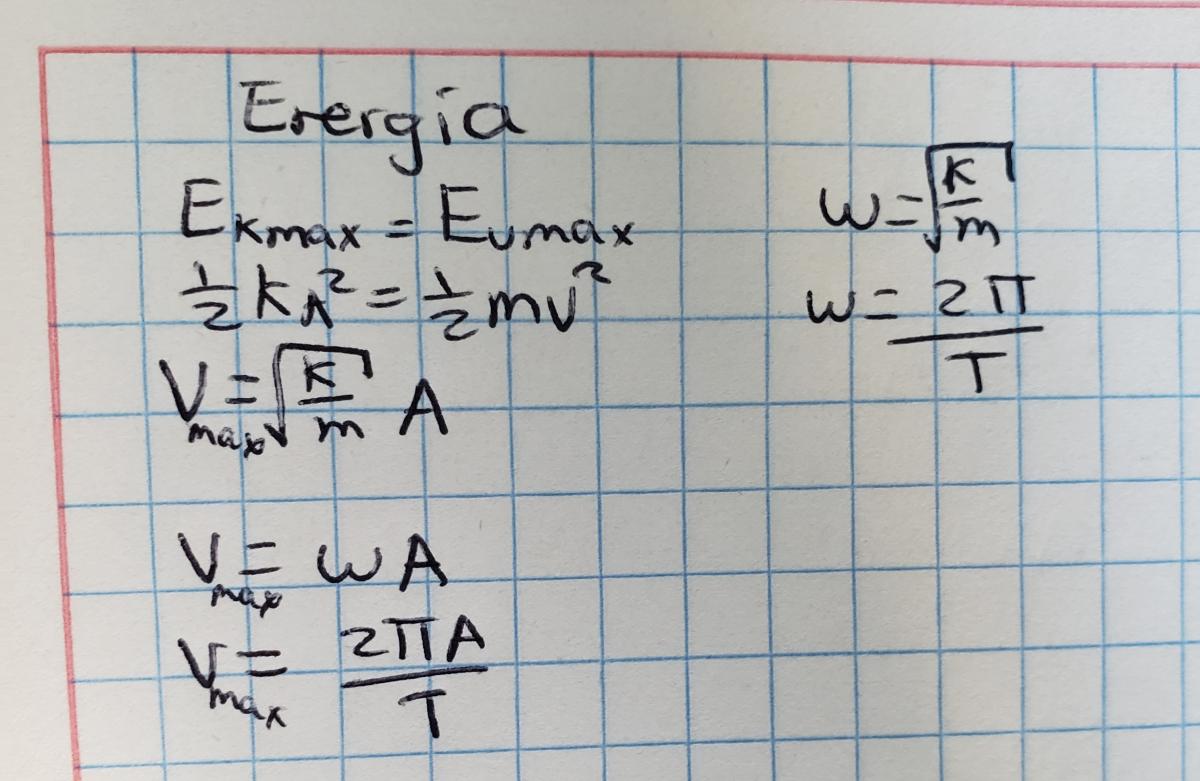 Energía
E_Kmax = E_Umax
½ K A² = ½ m v²
V_max = √(K/m) A
V_max = ω A
V_max = 2πA/T
ω = √(K/m)
ω = 2π/T